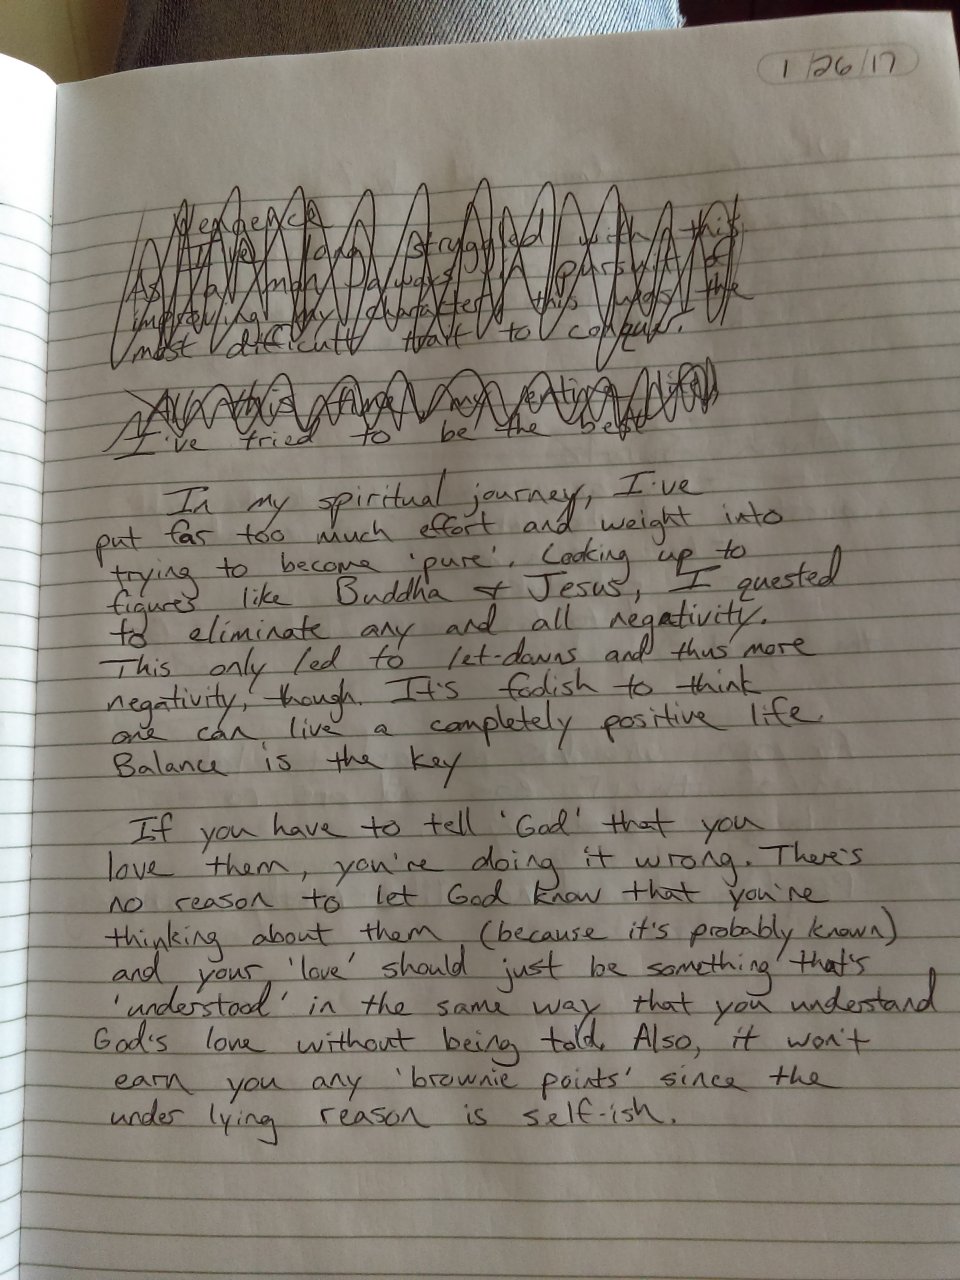 1/26/17
As I've long struggled with this
in many pursuit of
improving my character, this was the
most difficult trait to conquer.
All this time my entire life
I've tried to be the best
In my spiritual journey, I've
put far too much effort and weight into
trying to become 'pure'. Looking up to
figures like Buddha & Jesus, I quested
to eliminate any and all negativity.
This only led to let-downs and thus more
negativity, though. It's foolish to think
one can live a completely positive life.
Balance is the key
If you have to tell 'God' that you
love them, you're doing it wrong. There's
no reason to let God know that you're
thinking about them (because it's probably known)
and your 'love' should just be something that's
'understood' in the same way that you understand
God's love without being told. Also, it won't
earn you any 'brownie points' since the
under lying reason is self-ish.